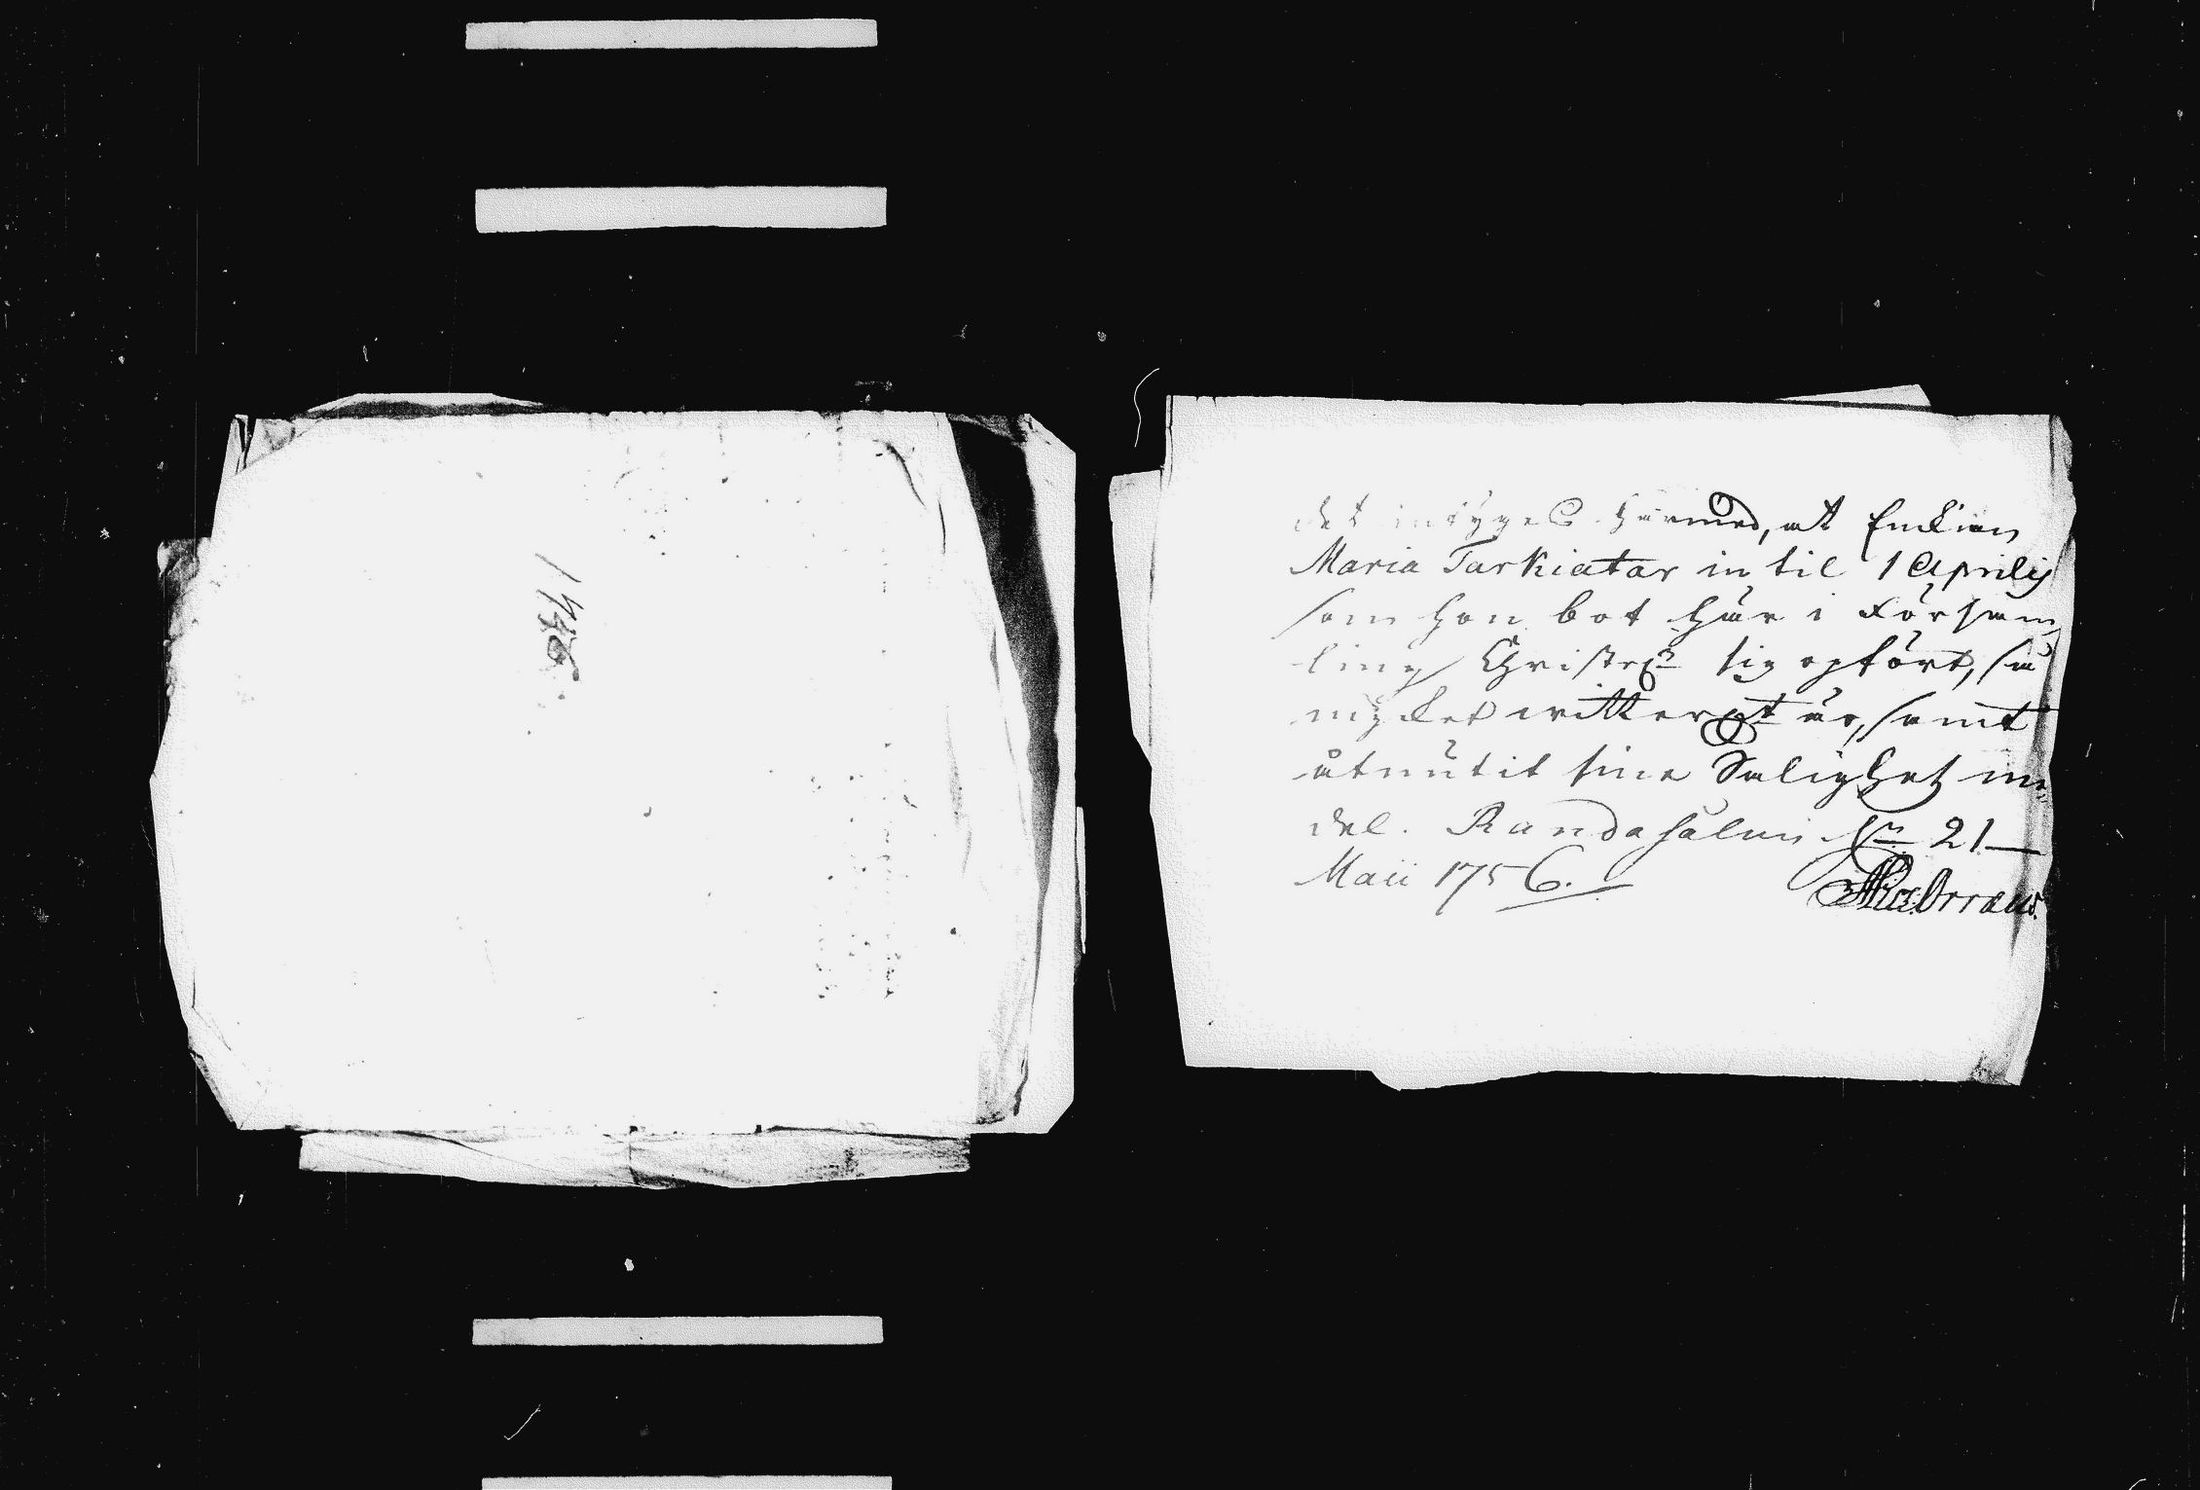 1756
det intyges härmed, at Enckian
Maria Tarkiatar in til 1 Aprilij
som hon bot här i Försam
ling Christel. sig opfört, så
mycket witterligt är, samt
åtniutit sine Salighetz me
del. Randasalmi d. 21
Maii 1756.